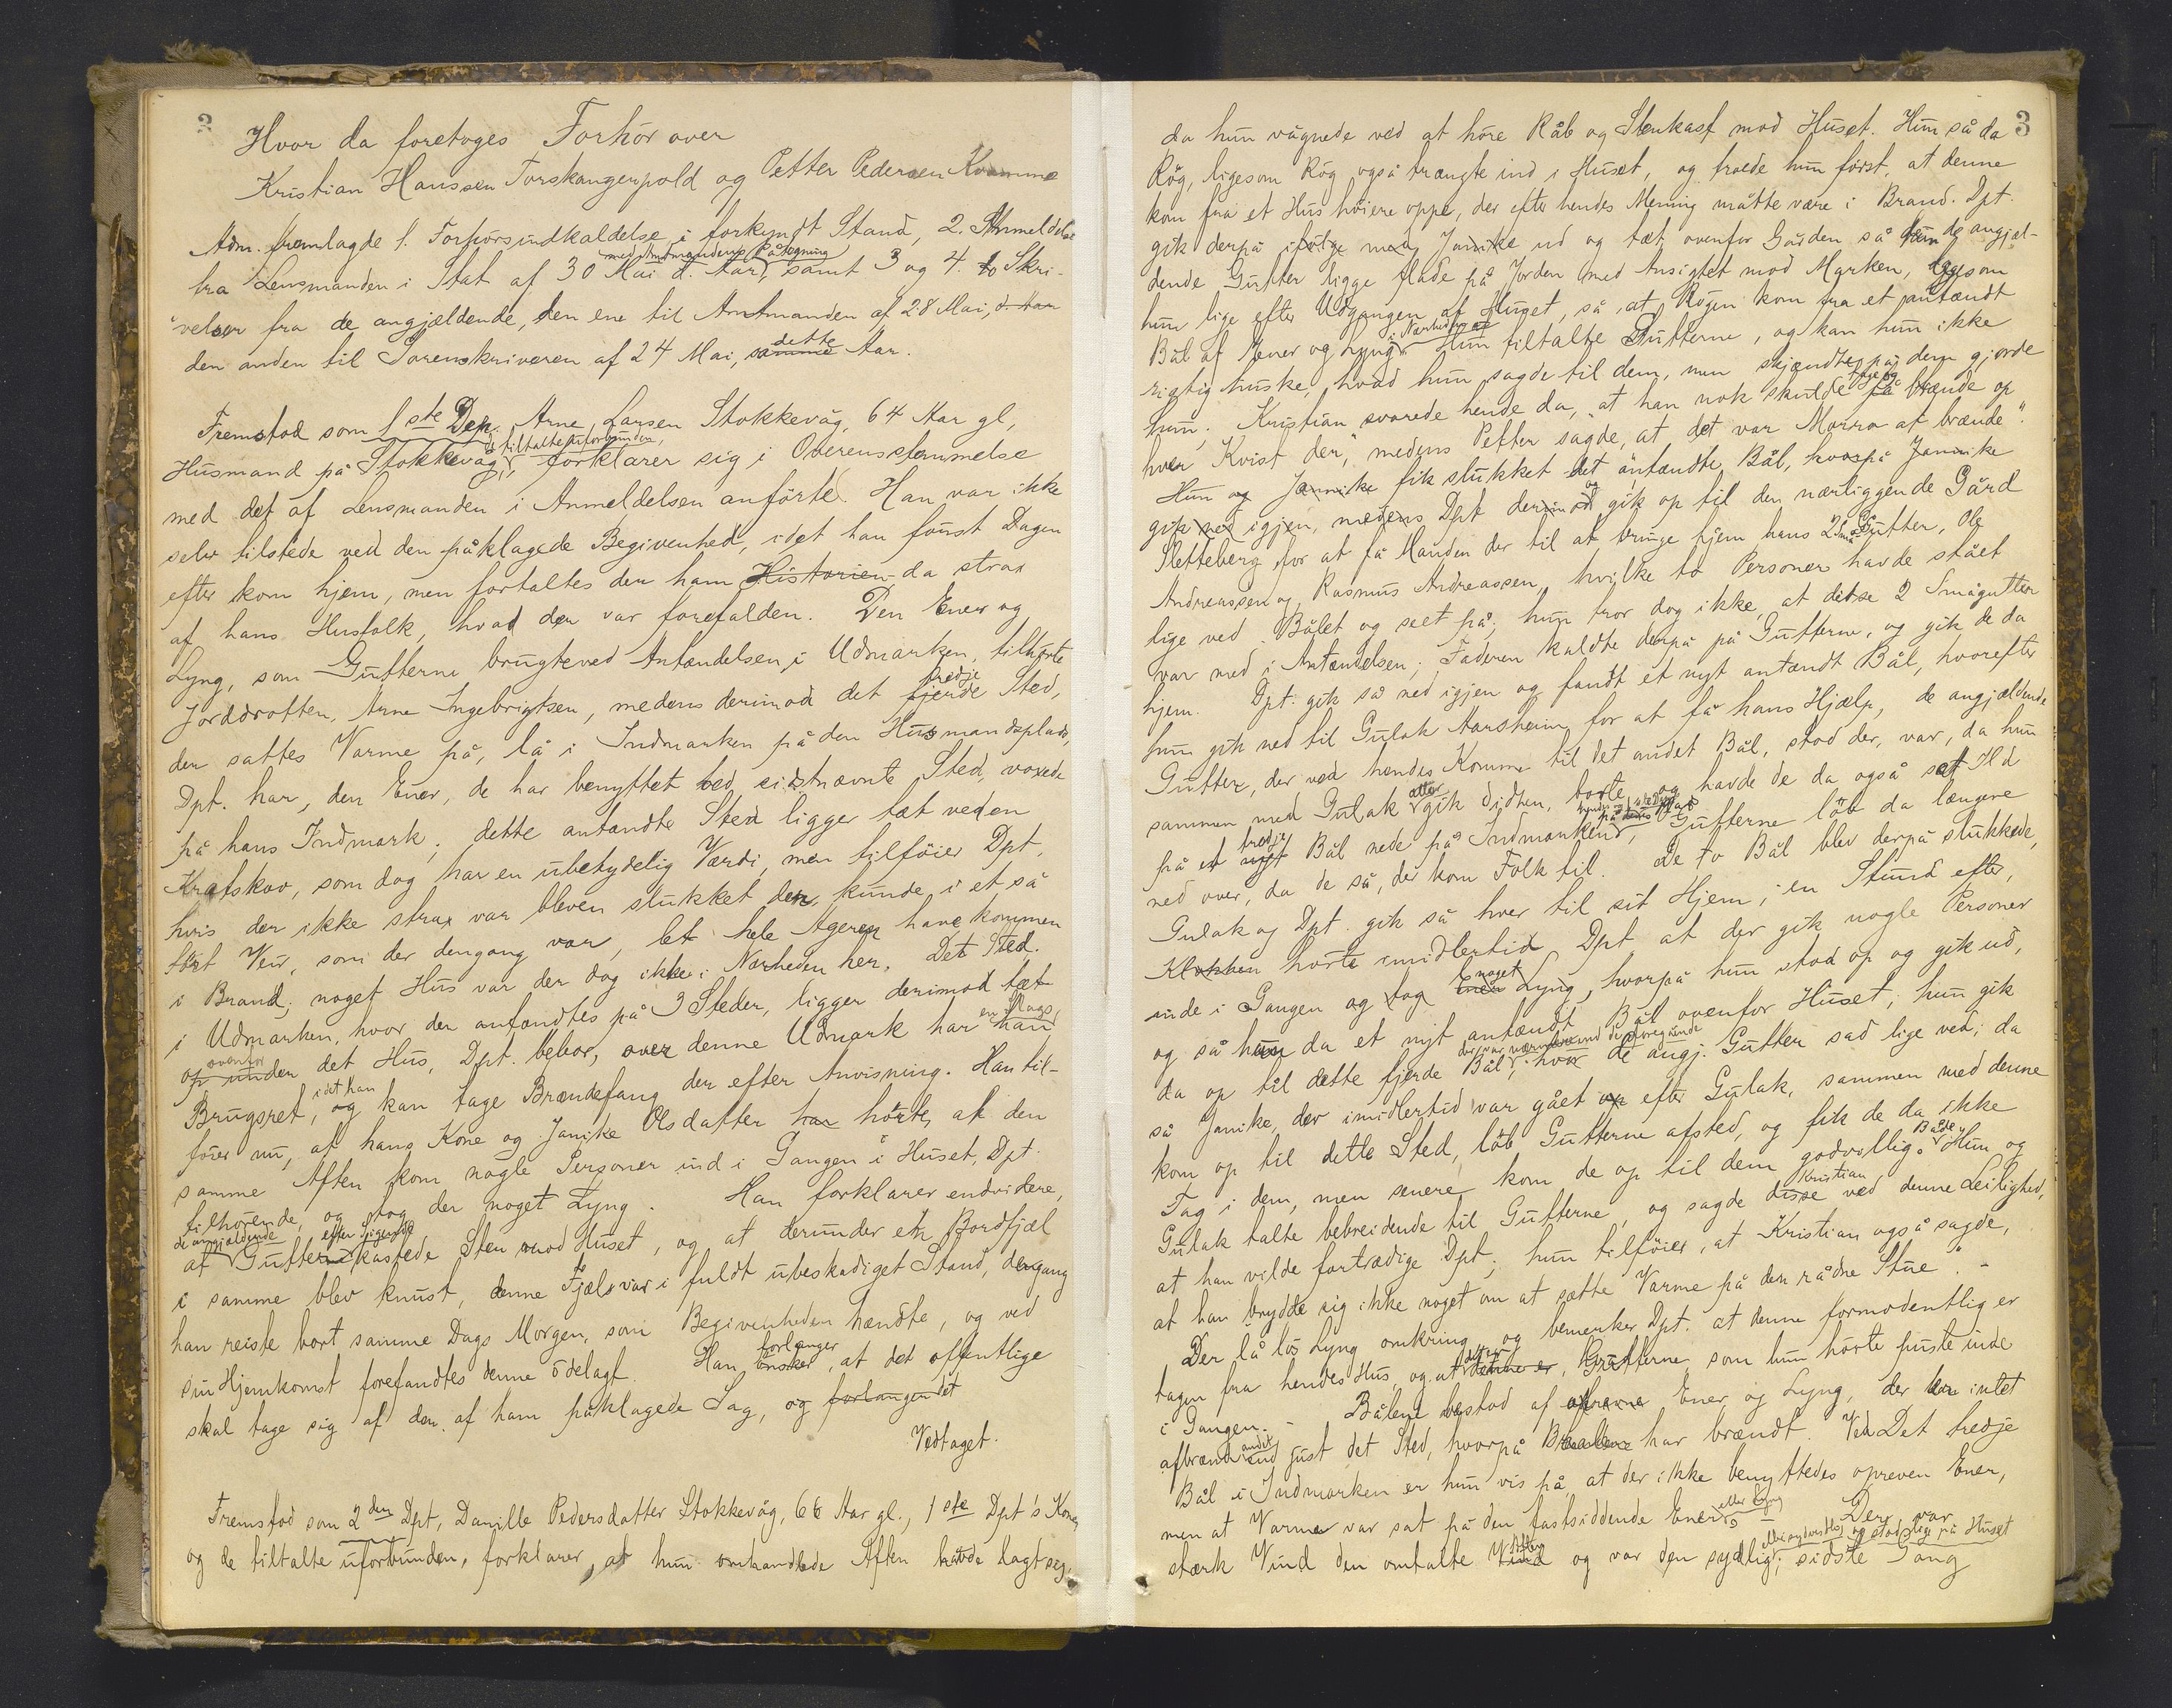 2
Hvor da foretoges Forhör over
Kristian Hanssen Torskangerpold og Petter Pedersen Kvamme
Adm. fremlagde 1. Forhörsindkaldelse i forkyndt Stand, 2. Anmeldelse
med Amtmandens Påtegning
fra Lensmanden i Stat af 30 Mai d. Aar, samt 3 og 4. to Skri-
velser fra de angjældende, den ene til Amtmanden af 28 Mai, d. Aar
den anden til Sorenskriveren af 24 Mai, samme dette Aar.
Fremstod som 1ste Dep. Arne Larsen Stokkevåg, 64 Aar gl,
de tiltalte uforbunden,
Husmand på Stokkevåg, forklarer sig i Overensstemmelse
med det af Lensmanden i Anmeldelsen anförte. Han var ikke
selv tilstede ved den påklagede Begivenhed, idet han först Dagen
efter kom hjem, men fortaltes der ham Historien da strax
af hans Husfolk, hvad der var forefalden. Den Ener og
Lyng, som Gutterne brugte ved Antændelsen i Udmarken, tilhørte
Jorddrotten, Arne Ingebrigtsen, medens derimod det fjerde tredje Sted,
der sattes Varme på, lå i Indmarken på den Husmandsplads,
Dpt. har, den Ener, de har benyttet ved sidstnævnte Sted, voxede
på hans Indmark; dette antændte Sted ligger tæt ved en
Kratskov, som dog har en ubetydelig Værdi, men tilföier Dpt,
hvis der ikke strax var bleven slukket der, kunde i et så
tört Veir, som der dengang var, let hele Ageren have kommen
i Brand; noget Hus var der dog ikke i Nærheden her. Det Sted
i Udmarken, hvor der antændtes på 3 Steder, ligger derimod tæt
op under ovenfor det Hus, Dpt. bebor, over denne Udmark har han en Slags
Brugsret, og idet han kan tage Brændefang der efter Anvisning. Han til-
föier nu, at hans Kone og Janike Olsdatter har hörte, at den
samme Aften kom nogle Personer ind i Gangen i Huset, Dpt.
tilhörende, og tog der noget Lyng. Han forklarer endvidere,
de angjældende efter Sigende
at Gutterne kastede Sten mod Huset, og at derunder et Bordfjæl
i samme blev knust, denne Fjæl var i fuldt ubeskadiget Stand, dengang
han reiste bort samme Dags Morgen, som Begivenheden hændte, og ved
sin Hjemkomst forefandtes denne ödelagt. Han önsker forlanger, at det offentlige
skal tage sig af den af ham påklagede Sag, og forlanger det
Vedtaget.
Fremstod som 2den Dpt, Danille Pedersdatter Stokkevåg, 66 Aar gl., 1ste Dpt's Kone,
og de tiltalte uforbunden, forklarer, at hun omhandlede Aften havde lagt sig,
3
da hun vågnede ved at höre Råb og Stenkast mod Huset. Hun så da
Rög, ligesom Rög også trængte ind i Huset, og troede hun först, at denne
kom fra et Hus höiere oppe, der efter hendes Mening måtte være i Brand. Dpt.
gik derpå ifölge med Janike ud og tæt ovenfor Gården så hun de angjæl-
dende Gutter ligge flade på Jorden med Ansigtet mod Marken, ligesom
hun lige efter Udgangen af Huset, så, at Rögen kom fra et antændt
Bål af Ener og Lyng i Nærheden. Hun tiltalte Gutterne, og kan hun ikke
rigtig huske, hvad hun sagde til dem, men skjændte på dem gjorde
hun. Kristian svarede hende da, "at han nok skulde få brænde op
hver Kvist der," medens Petter sagde, at det var "Morro at brænde".
Hun og Jannike fik slukket det antændte Bål, hvorpå Jannike
gik ned igjen, medens Dpt derimod og gik op til den nærliggende Gård
Sletteberg for at få Manden der til at bringe hjem hans 2 små Gutter, Ole
Andreassen og Rasmus Andreassen, hvilke to Personer havde stået
lige ved Bålet og seet på; hun tror dog ikke, at disse 2 Smågutter
var med i Antændelsen; Faderen kaldte derpå på Gutterne, og gik de da
hjem. Dpt. gik så ned igjen og fandt et nyt antændt Bål, hvorefter
hun gik ned til Gulak Aarsheim for at få hans Hjælp, de angjældende
Gutter, der ved hendes Komme til det andet Bål, stod der, var, da hun
sammen med Gulak atter gik didhen, borte og havde de da også sat Ild
på et nyt tredje Bål nede på Indmarken, Gutterne löb da længere
ned over, da de så, der kom Folk til. De to Bål blev derpå slukkede,
Gulak og Dpt. gik så hver til sit Hjem; en Stund efter,
Klokken hörte imidlertid Dpt at der gik nogle Personer
inde i Gangen og tog Ener noget Lyng, hvorpå hun stod op og gik ud,
og så hun da et nyt antændt Bål ovenfor Huset; hun gik
der var nærmere end de foregående
da op til dette fjerde Bål, hvor de angj. Gutter sad lige ved; da
så Janike, der imidlertid var gået op efter Gulak, sammen med denne
kom op til dette Sted, löb Gutterne afsted, og fik de da ikke
Tag i dem, men senere kom de op til dem godvillig. Både Hun og
Gulak talte bebreidende til Gutterne, og sagde disse Kristian ved denne Leilighed,
at han vilde fortrædige Dpt; hun tilföier, at Kristian også sagde,
at han brydde sig ikke noget om at sætte Varme på den rådne Stue". -
Der lå lös Lyng omkring og bemerker Dpt. at denne formodentlig er
tagen fra hendes Hus, og at denne er, Gutterne, som hun hörte puste inde
i Gangen. - Bålene bestod af opreven Ener og Lyng, der er intet
afbrændt andet end just det Sted, hvorpå Baalene har brændt. Ved Det tredje
Bål i Indmarken er hun vis på, at der ikke benyttedes opreven Ener,
men at Varme var sat på den fastsiddende Ener eller Lyng. Der var
stærk Vind den omtalte Vind Aften og var den sydlig; og stod lige på Huset sidste Gang